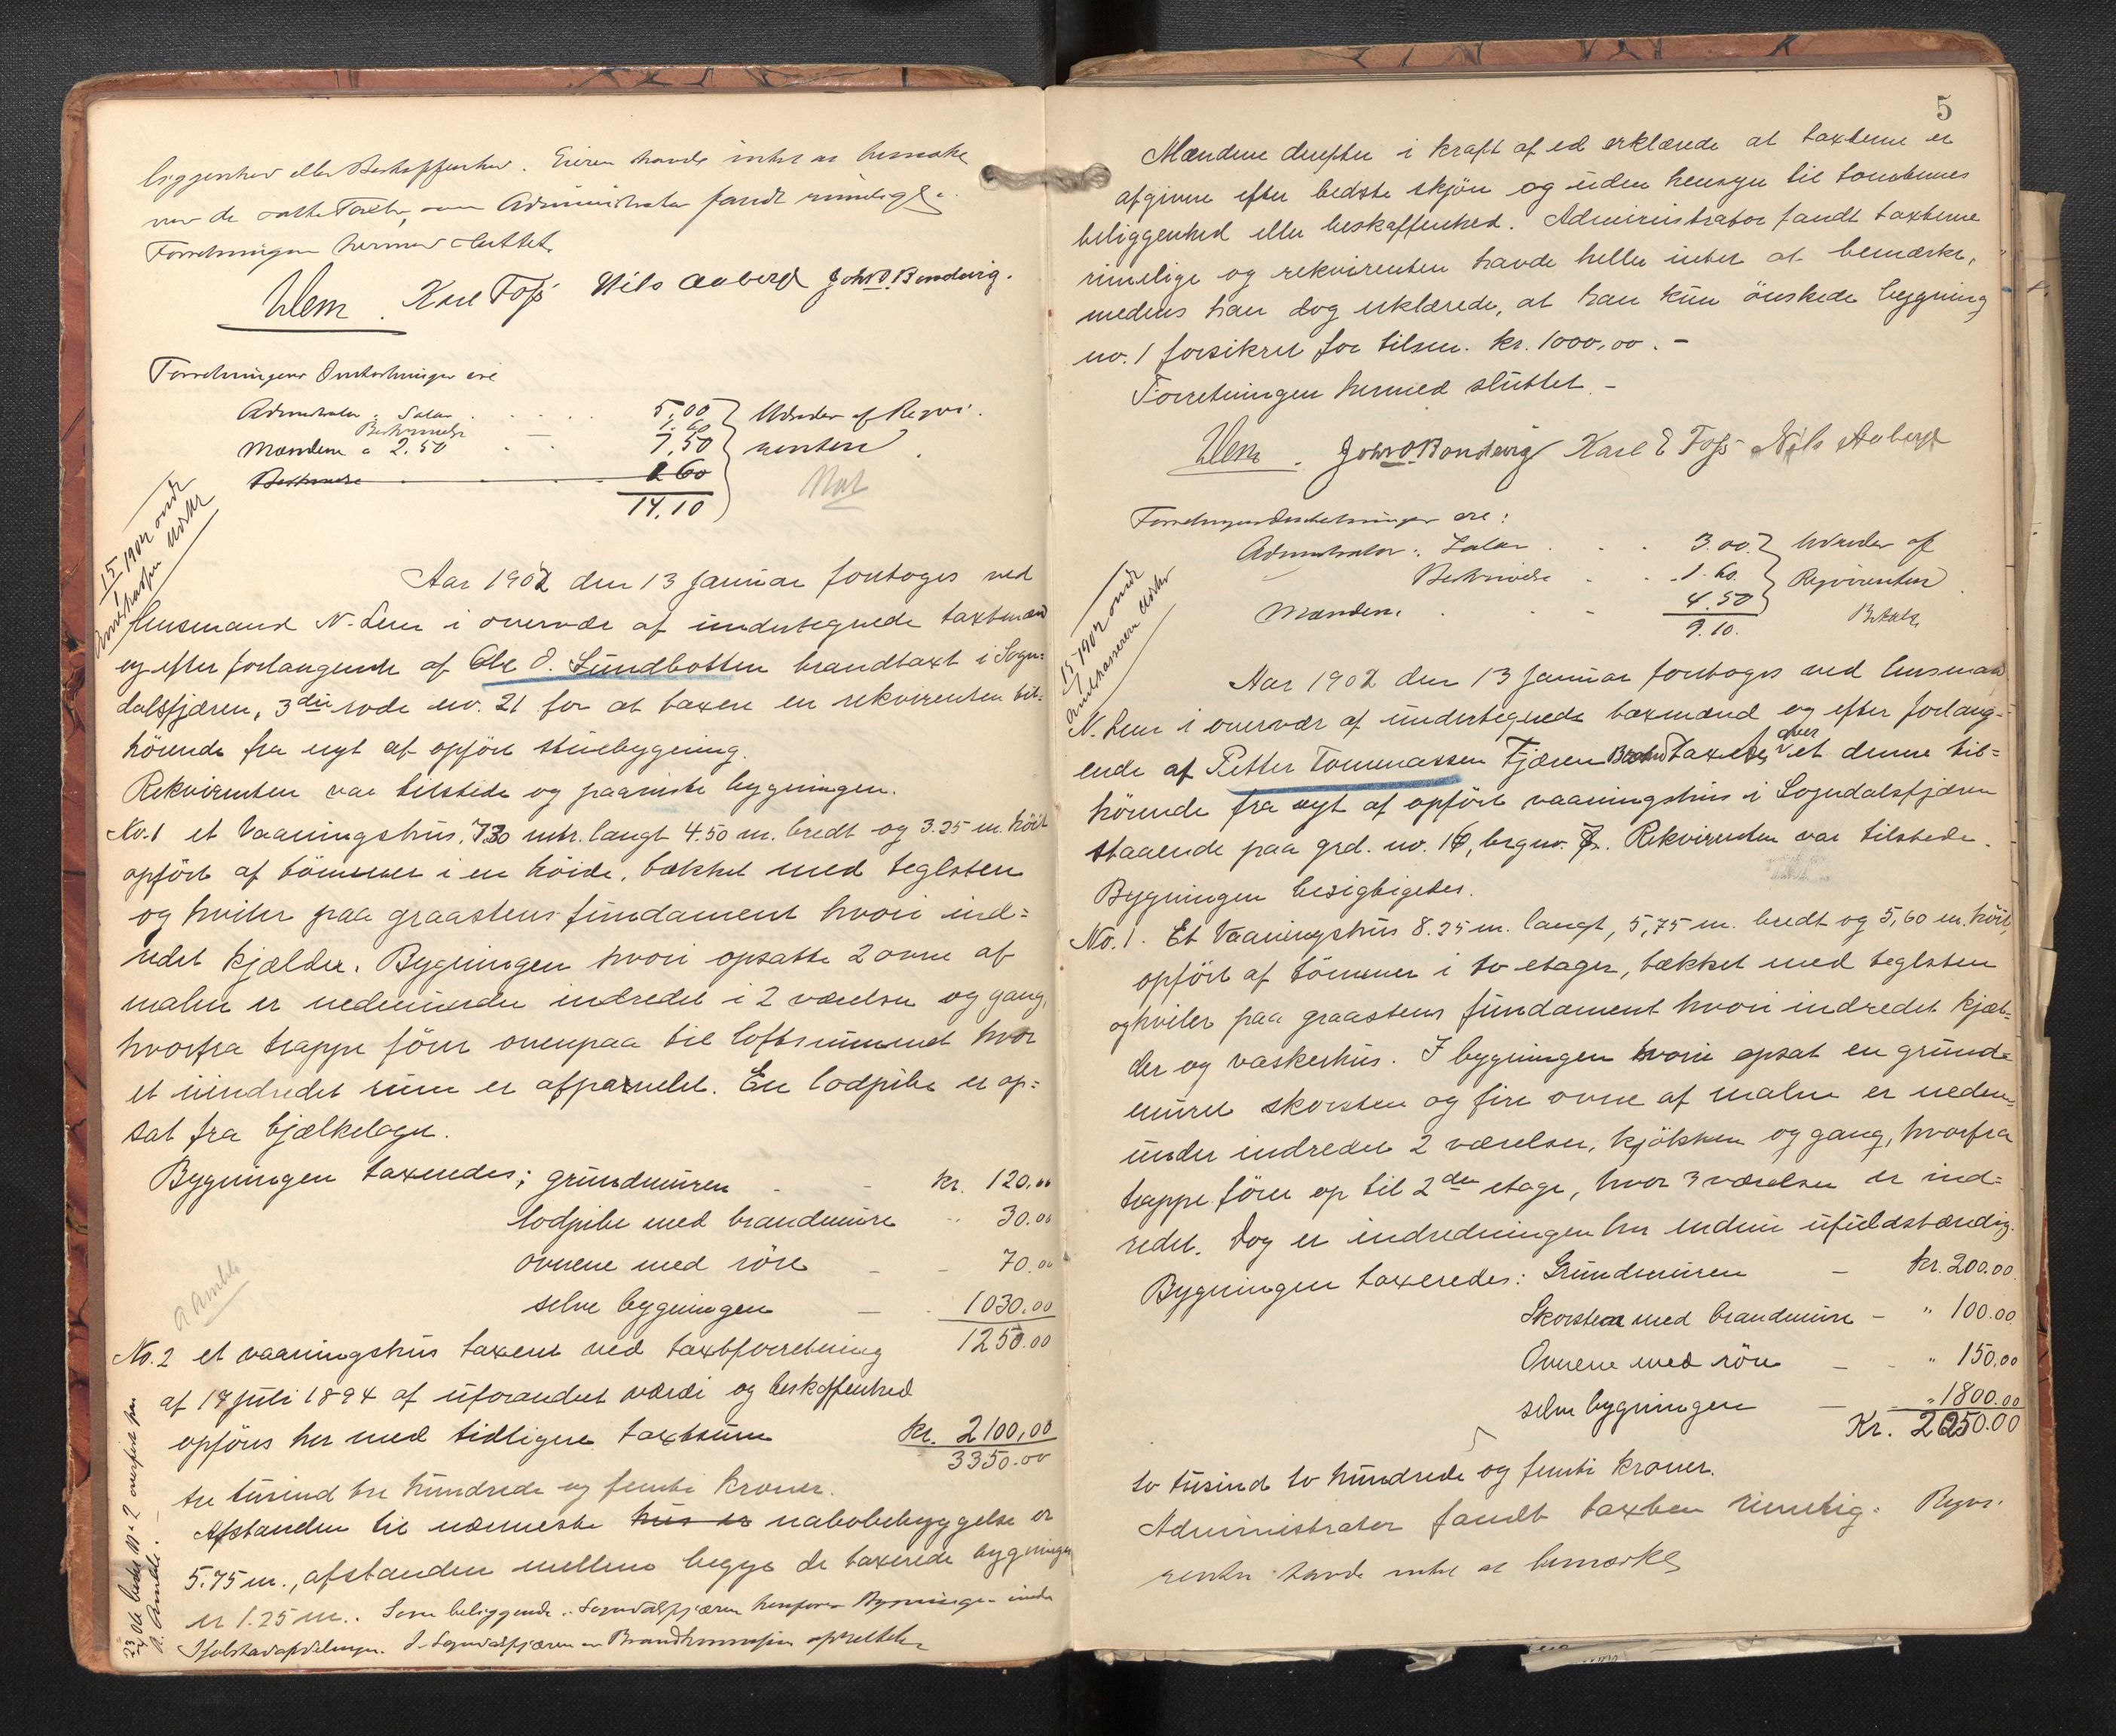 liggenhed eller Beskaffenhed. Eieren havde intet at bemærke
mod de satte Taxter, som Administrator fandt rimelige.
Forretningen hermed sluttet
Ulem. Karl Foss Nils Aaberg Johs O. Bondevig.
Forretningens Omkostninger ere
Administrator: Salar . . . 5,00
Beskrivelse — 1.60
Mændene a 2,50 . . 7,50
Beskrivelse 1 60
14.10
Udreder af Reqvi-
renten
Not
15/1 1902 omdt
Amtskassen Udskr
Aar 1902 den 13 Januar foretoges ved
lensmand N. Lem i overvær af undertegnede taxtmænd
og efter forlangende af Ole O. Sundbotten brandtaxt i Sogn-
dalsfjæren, 3die rode no. 21 for at taxere en rekvirenten til-
hörende fra nyt af opfört stuebygning.
Rekvirenten var tilstede og paaviste bygningen.
No. 1 et Vaaningshus, 7.30 mtr. langt 4.50 m. bredt og 3.25 m. höit
opfört af tömmer i en höide, tækket med teglsten
og hviler paa graastens fundament hvori ind-
redet kjælder. Bygningen hvori opsatte 2 ovne af
malm er nedenunder indredet i 2 værelser og gang,
hvorfra trappe förer ovenpaa til loftsrummet hvor
et uindredet rum er afpanelet. En lodpibe er op-
sat fra bjælkelaget.
Bygningen taxeredes; grundmuren - - kr. 120.00
lodpibe med brandmure " 30.00
ovnene med röre - - 70.00
selve bygningen — . 1030.00
1250.00
A Amble
No. 2 et vaaningshus taxeret ved taxtforretning
af 17 juli 1894 af uforandret værdi og beskaffenhed
opföres her med tidligere taxtsum kr. 2100,00
3350.00
tre tusind tre hundrede og femti kroner.
Afstanden til nærmeste hus er nabobebyggelse er
5.75 m., afstanden mellem begge de taxerede bygninger
er 1.25 m.. Som beliggende i Sogndalsfjæren henföres Bygningen under
Kjøbstadafdelingen. I Sogndalsfjæren er Brandkommission oprettet.
5
Mændene derefter i kraft af ed erklærede at taxterne er
afgivne efter bedste skjön og uden hensyn til tomternes
beliggenhed eller beskaffenhed. Administrator fandt taxterne
rimelige og rekvirenten havde heller intet at bemærke,
medens han dog erklærede, at han kun önskede bygning
no. 1 forsikret for tilsm. kr. 1000,00. -
Forretningen hermed sluttet -
Ulem. Johs O. Bondevig Karl E Foss Nils Aaberg
Forretningens Omkostninger ere:
Administrator: Salar . . . 3.00.
Beskrivelse . . 1.60.
Mændene . . - 4.50
9.10.
Udreder af
Reqvirenten
Betalt
15/1 1902 omdt
Amtskasseren Udskr
Aar 1902 den 13 januar foretoges ved lensmand
N. Lem i overvær af undertegnede taxmænd og efter forlang-
ende af Petter Tommassen Fjæren Brandtaxt over et denne til-
hörende fra nyt af opfört vaaningshus i Sogndalsfjæren
staaende paa grd. no. 16, brgno. 7. Rekvirenten var tilstede.
Bygningen besigtigedes.
No. 1. Et Vaaningshus 8.25 m. langt, 5,75 m. bredt og 5,60 m. höit,
opfört af tömmer i to etager, tækket med teglsten
og hviler paa graastens fundament hvori indredet kjæl-
der og vaskerhus. I bygningen hvori opsat en grund-
muret skorsten og fire ovne af malm er neden-
under indredet 2 værelser, kjökken og gang, hvorfra
trappe förer op til 2den etage, hvor 3 værelser er ind-
redet. Dog er indredningen her endnu ufuldstændig.
Bygningen taxeredes: Grundmuren — kr. 200.00
Skorsten med brandmure — " 100.00
Ovnene med röre — - " 150,00
selve bygningen — " 1800.00
Kr. 2250.00
to tusind to hundrede og femti kroner.
Administrator fandt taxten rimelig. Reqvi-
renten havde intet at bemærke